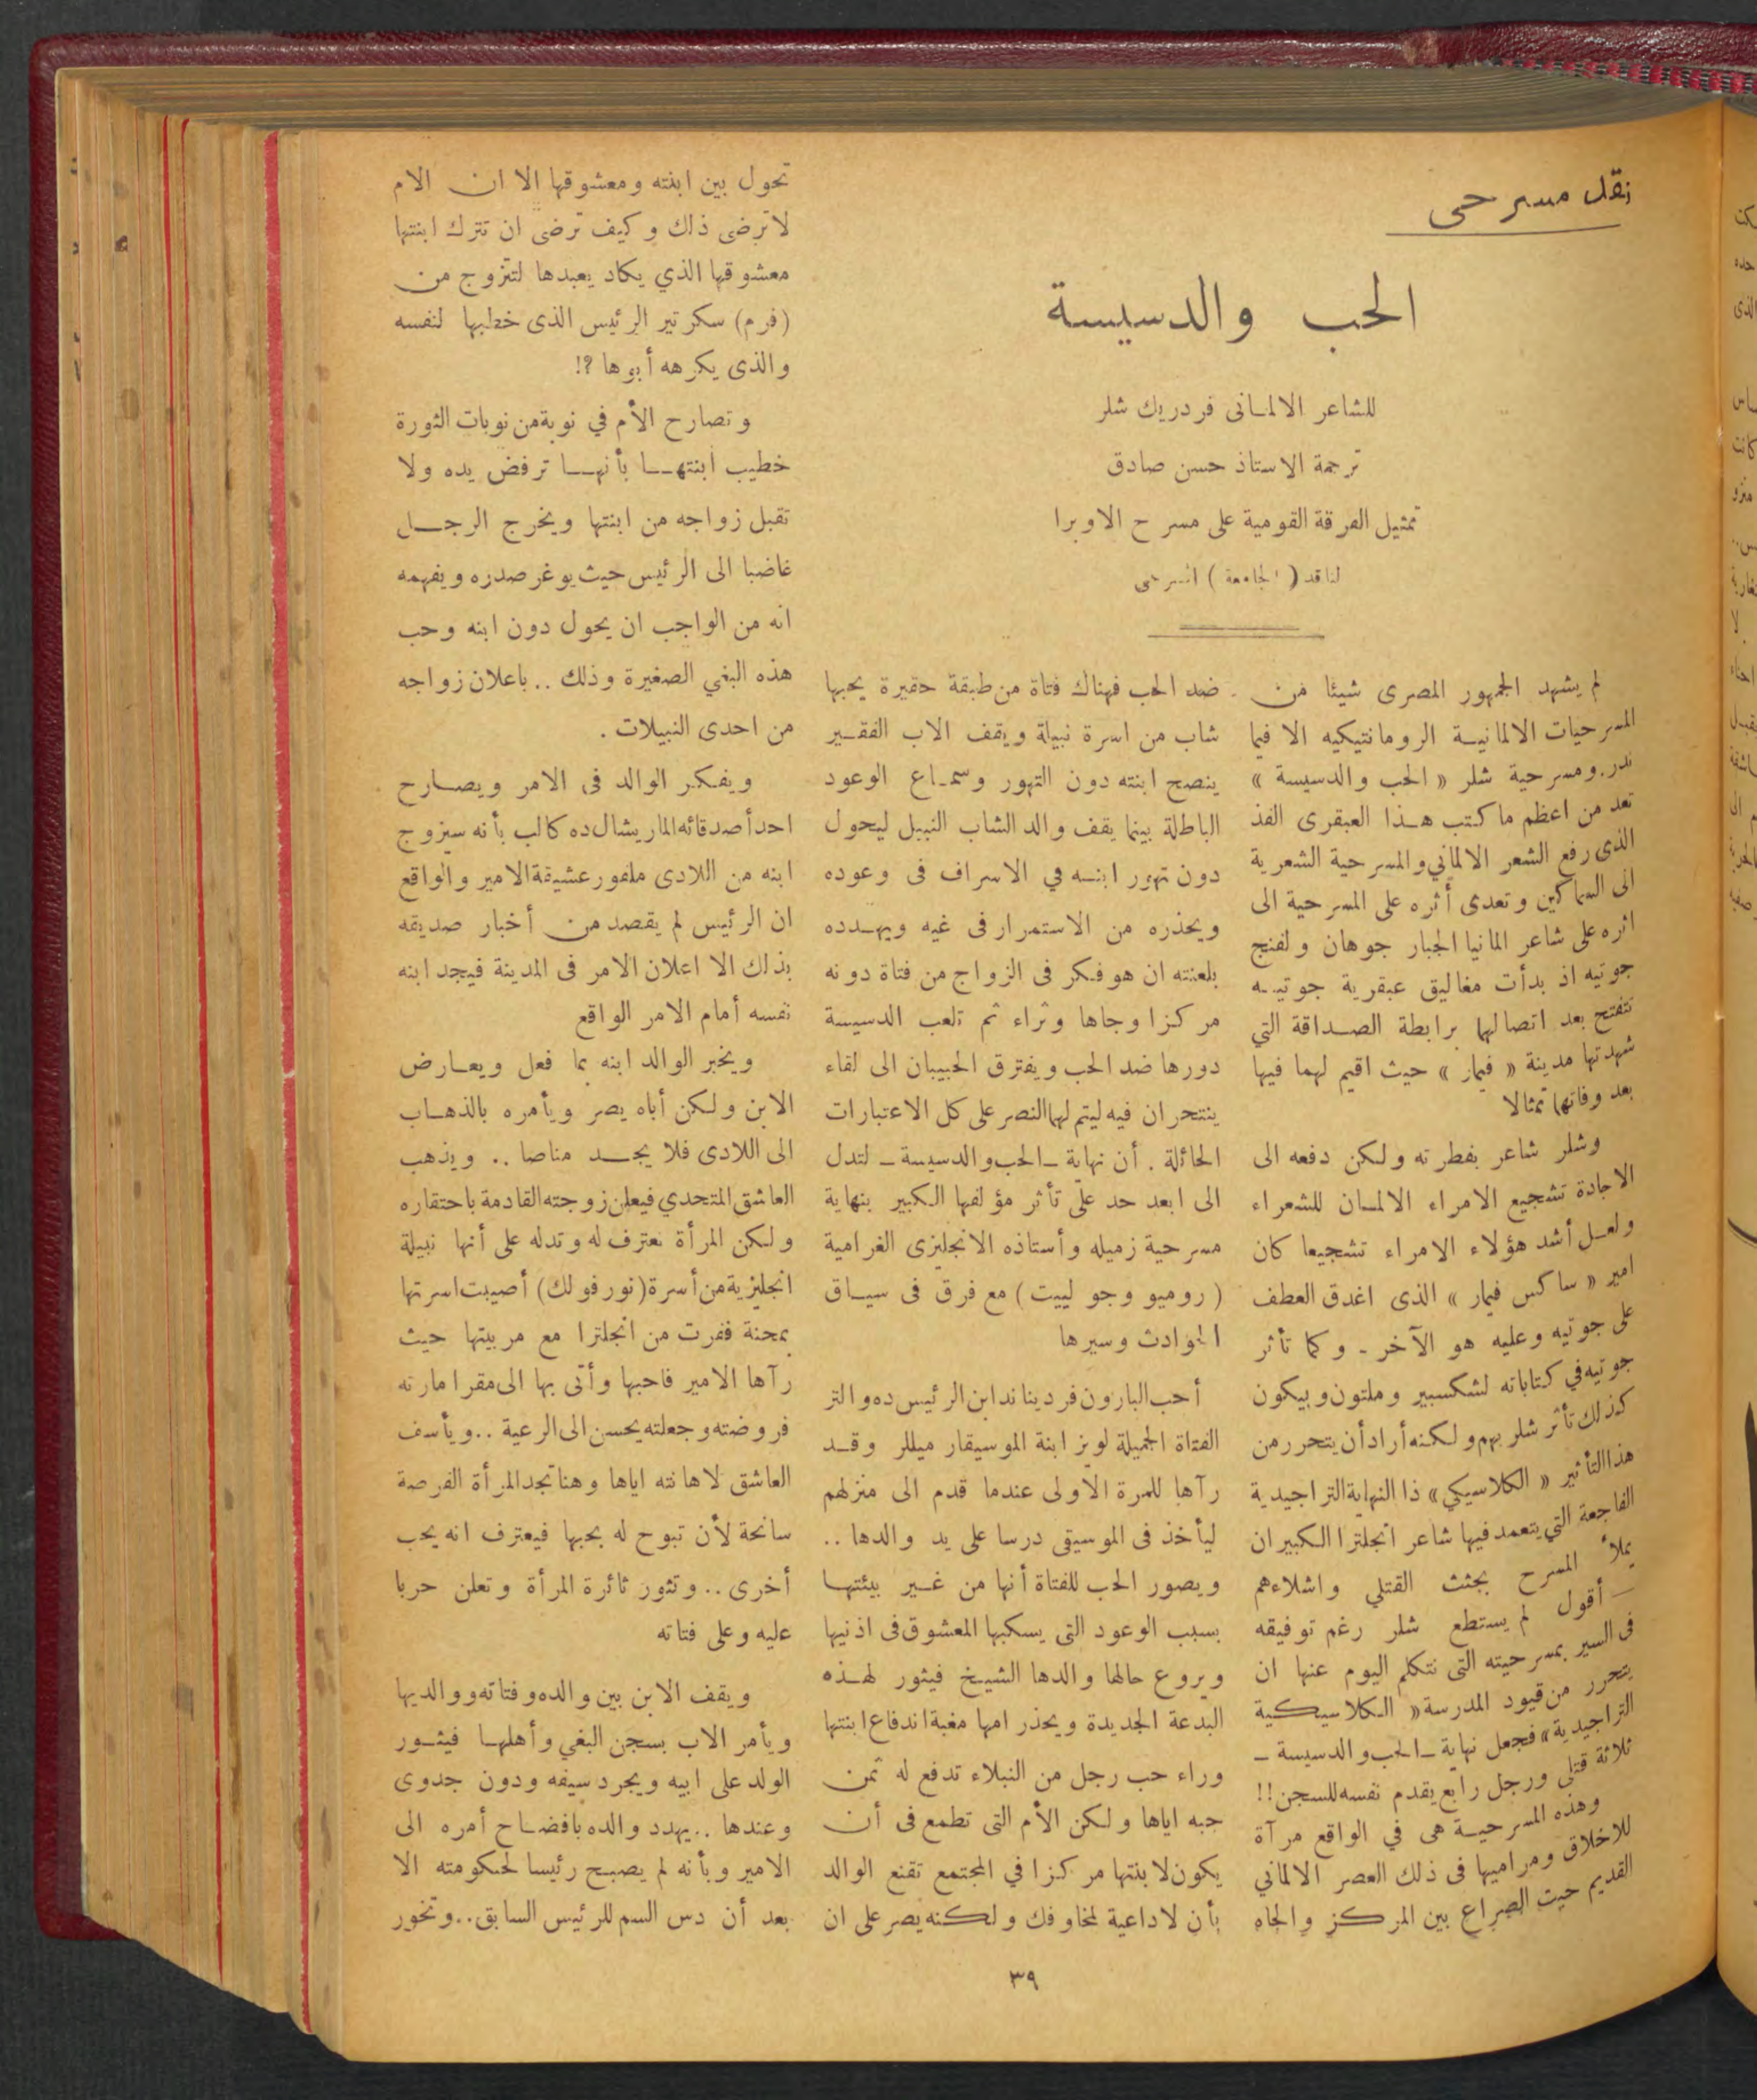 نقد مسرحى
الحب والدسيسة
للشاعر الالمانى فردريك شلر
ترجمة الاستاذ حسن صادق
تمثيل الفرقة القومية على مسرح الاوبرا
لناقد ( الجامعة ) المسرحى
لم يشهد الجمهور المصرى شيئا من
المسرحيات الالمانية الرومانتيكيه الا فيما
ندر. ومسرحية شلر « الحب والدسيسة »
تعد من اعظم ما كتب هذا العبقرى الفذ
الذى رفع الشعر الالماني والمسرحية الشعرية
الى السماكين وتعدى أثره على المسرحية الى
اثره على شاعر المانيا الجبار جوهان ولفنج
جوتيه اذ بدأت مغاليق عبقرية جوتيه
تتفتح بعد اتصالهما برابطة الصداقة التي
شهدتها مدينة « فيمار » حيث اقيم لهما فيها
بعد وفاتهما تمثالا
وشلر شاعر بفطرته ولكن دفعه الى
الاجادة تشجيع الامراء الالمان للشعراء
ولعل أشد هؤلاء الامراء تشجيعا كان
امير « ساكس فيمار » الذى اغدق العطف
على جوتيه وعليه هو الآخر - وكما تأثر
جوتيه في كتاباته لشكسبير وملتون وبيكون
كذلك تأثر شلر بهم ولكنه أراد أن يتحرر من
هذا التأثير « الكلاسيكي » ذا النهاية التراجيدية
الفاجعة التي يتعمد فيها شاعر انجلترا الكبير ان
يملأ المسرح بجثث القتلي واشلاءهم
– أقول لم يستطع شلر رغم توفيقه
فى السير بمسرحيته التى نتكلم اليوم عنها ان
يتحرر من قيود المدرسة « الكلاسيكية
التراجيدية » فجعل نهاية – الحب والدسيسة –
ثلاثة قتلى ورجل رابع يقدم نفسه للسجن !!
وهذه المسرحية هى في الواقع مرآة
للاخلاق ومراميها فى ذلك العصر الالماني
القديم حيث الصراع بين المركز والجاه
ضد الحب فهناك فتاة من طبقة حقيرة يحبها
شاب من اسرة نبيلة ويقف الاب الفقير
ينصح ابنته دون التهور وسماع الوعود
الباطلة بينما يقف والد الشاب النبيل ليحول
دون تهور ابنه في الاسراف فى وعوده
ويحذره من الاستمرار فى غيه ويهدده
بلعنته ان هو فكر فى الزواج من فتاة دونه
مركزا وجاها وثراء ثم تلعب الدسيسة
دورها ضد الحب ويفترق الحبيبان الى لقاء
ينتحران فيه ليتم لهما النصر على كل الاعتبارات
الحائلة . أن نهاية – الحب والدسيسة – لتدل
الى ابعد حد على تأثر مؤلفها الكبير بنهاية
مسرحية زميله وأستاذه الانجليزى الغرامية
( روميو وجو ليبت ) مع فرق فى سياق
الحوادث وسيرها
أحب البارون فرديناند ابن الرئيس ده والتر
الفتاة الجميلة لويز ابنة الموسيقار ميللر وقد
رآها للمرة الاولى عندما قدم الى منزلهم
ليأخذ فى الموسيقى درسا على يد والدها ..
ويصور الحب للفتاة أنها من غير بيئتها
بسبب الوعود التى يسكبها المعشوق فى اذنيها
ويروع حالها والدها الشيخ فيثور لهذه
البدعة الجديدة ويحذر امها مغبة اندفاع ابنتها
وراء حب رجل من النبلاء تدفع له ثمن
حبه اياها ولكن الأم التى تطمع فى أن
يكون لابنتها مركزا في المجتمع تقنع الوالد
بأن لا داعية لمخاوفك ولكنه يصر على ان
تحول بين ابنته ومعشوقها الا ان الام
لا ترضى ذلك وكيف ترضى ان تترك ابنتها
معشوقها الذي يكاد يعبدها لتتزوج من
(فرم) سكرتير الرئيس الذى خطبها لنفسه
والذى يكرهه أبوها ?!
وتصارح الأم في نوبة من نوبات الثورة
خطيب ابنتها بأنها ترفض يده ولا
تقبل زواجه من ابنتها ويخرج الرجل
غاضبا الى الرئيس حيث يوغر صدره ويفهمه
انه من الواجب ان يحول دون ابنه وحب
هذه البغي الصغيرة وذلك .. باعلان زواجه
من احدى النبيلات .
ويفكر الوالد فى الامر ويصارح
احد أصدقائه الماريشال ده كالب بأنه سيزوج
ابنه من اللادى ملفور عشيقة الامير والواقع
ان الرئيس لم يقصد من أخبار صديقه
بذلك الا اعلان الامر فى المدينة فيجد ابنه
نفسه أمام الامر الواقع
ويخبر الوالد ابنه بما فعل ويعارض
الابن ولكن أباه يصر ويأمره بالذهاب
الى اللادى فلا يجد مناصا .. ويذهب
العاشق المتحدي فيعلن زوجته القادمة باحتقاره
ولكن المرأة تعترف له وتدله على أنها نبيلة
انجليزية من أسرة (نورفولك) أصيبت اسرتها
بمحنة ففرت من انجلترا مع مربيتها حيث
رآها الامير فاحبها وأتى بها الى مقر امارته
فروضته وجعلته يحسن الى الرعية .. ويأسف
العاشق لاهانته اياها وهنا تجد المرأة الفرصة
سانحة لأن تبوح له بحبها فيعترف انه يحب
أخرى .. وتثور ثائرة المرأة وتعلن حربا
عليه وعلى فتاته
ويقف الابن بين والده وفتاته ووالديها
ويأمر الاب بسجن البغي وأهلها فيثور
الولد على ابيه ويجرد سيفه ودون جدوى
وعندها .. يهدد والده بافضاح أمره الى
الامير وبأنه لم يصبح رئيسا لحكومته الا
بعد أن دس السم للرئيس السابق .. وتخور
٣٩